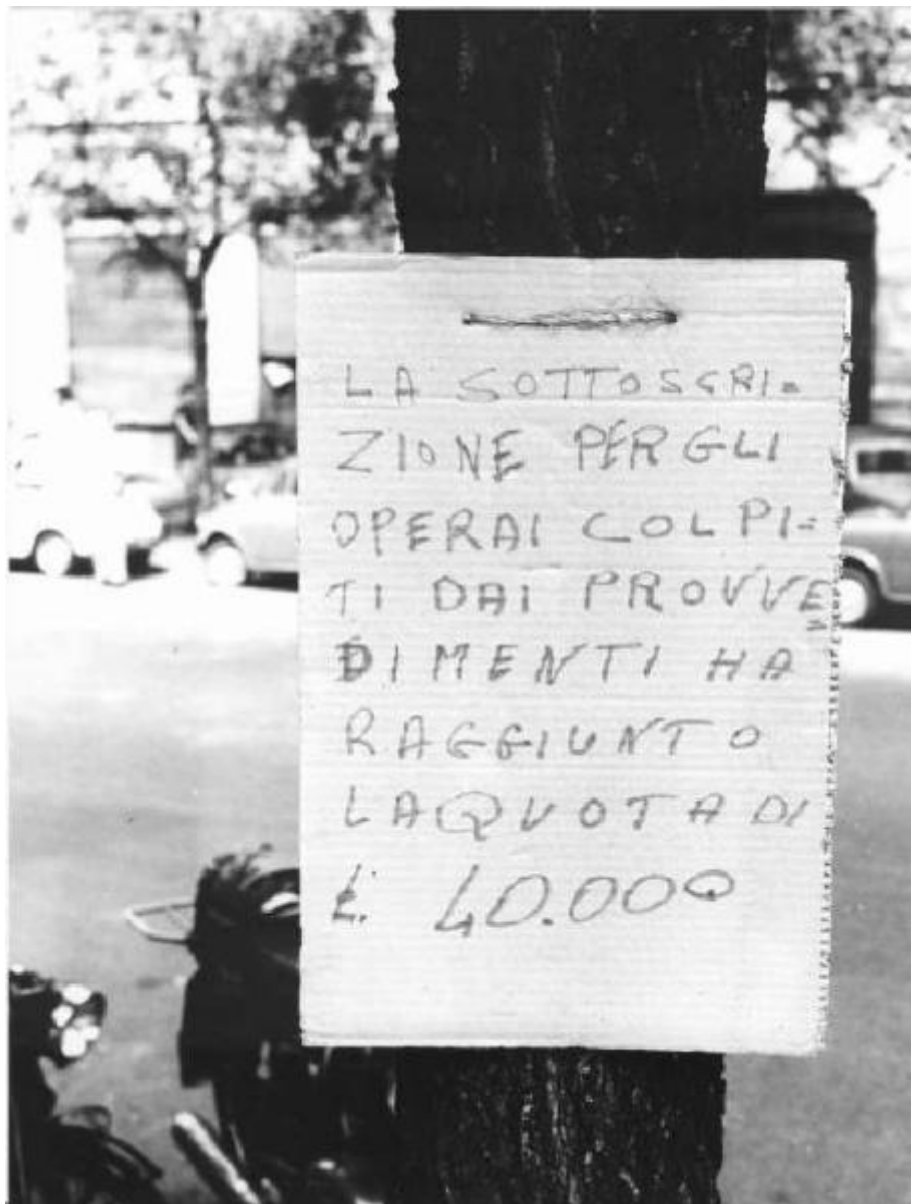 LA SOTTOSCRI=
ZIONE PER GLI
OPERAI COLPI=
TI DAI PROVVE
DIMENTI HA
RAGGIUNTO
LA QUOTA DI
£. 40.000